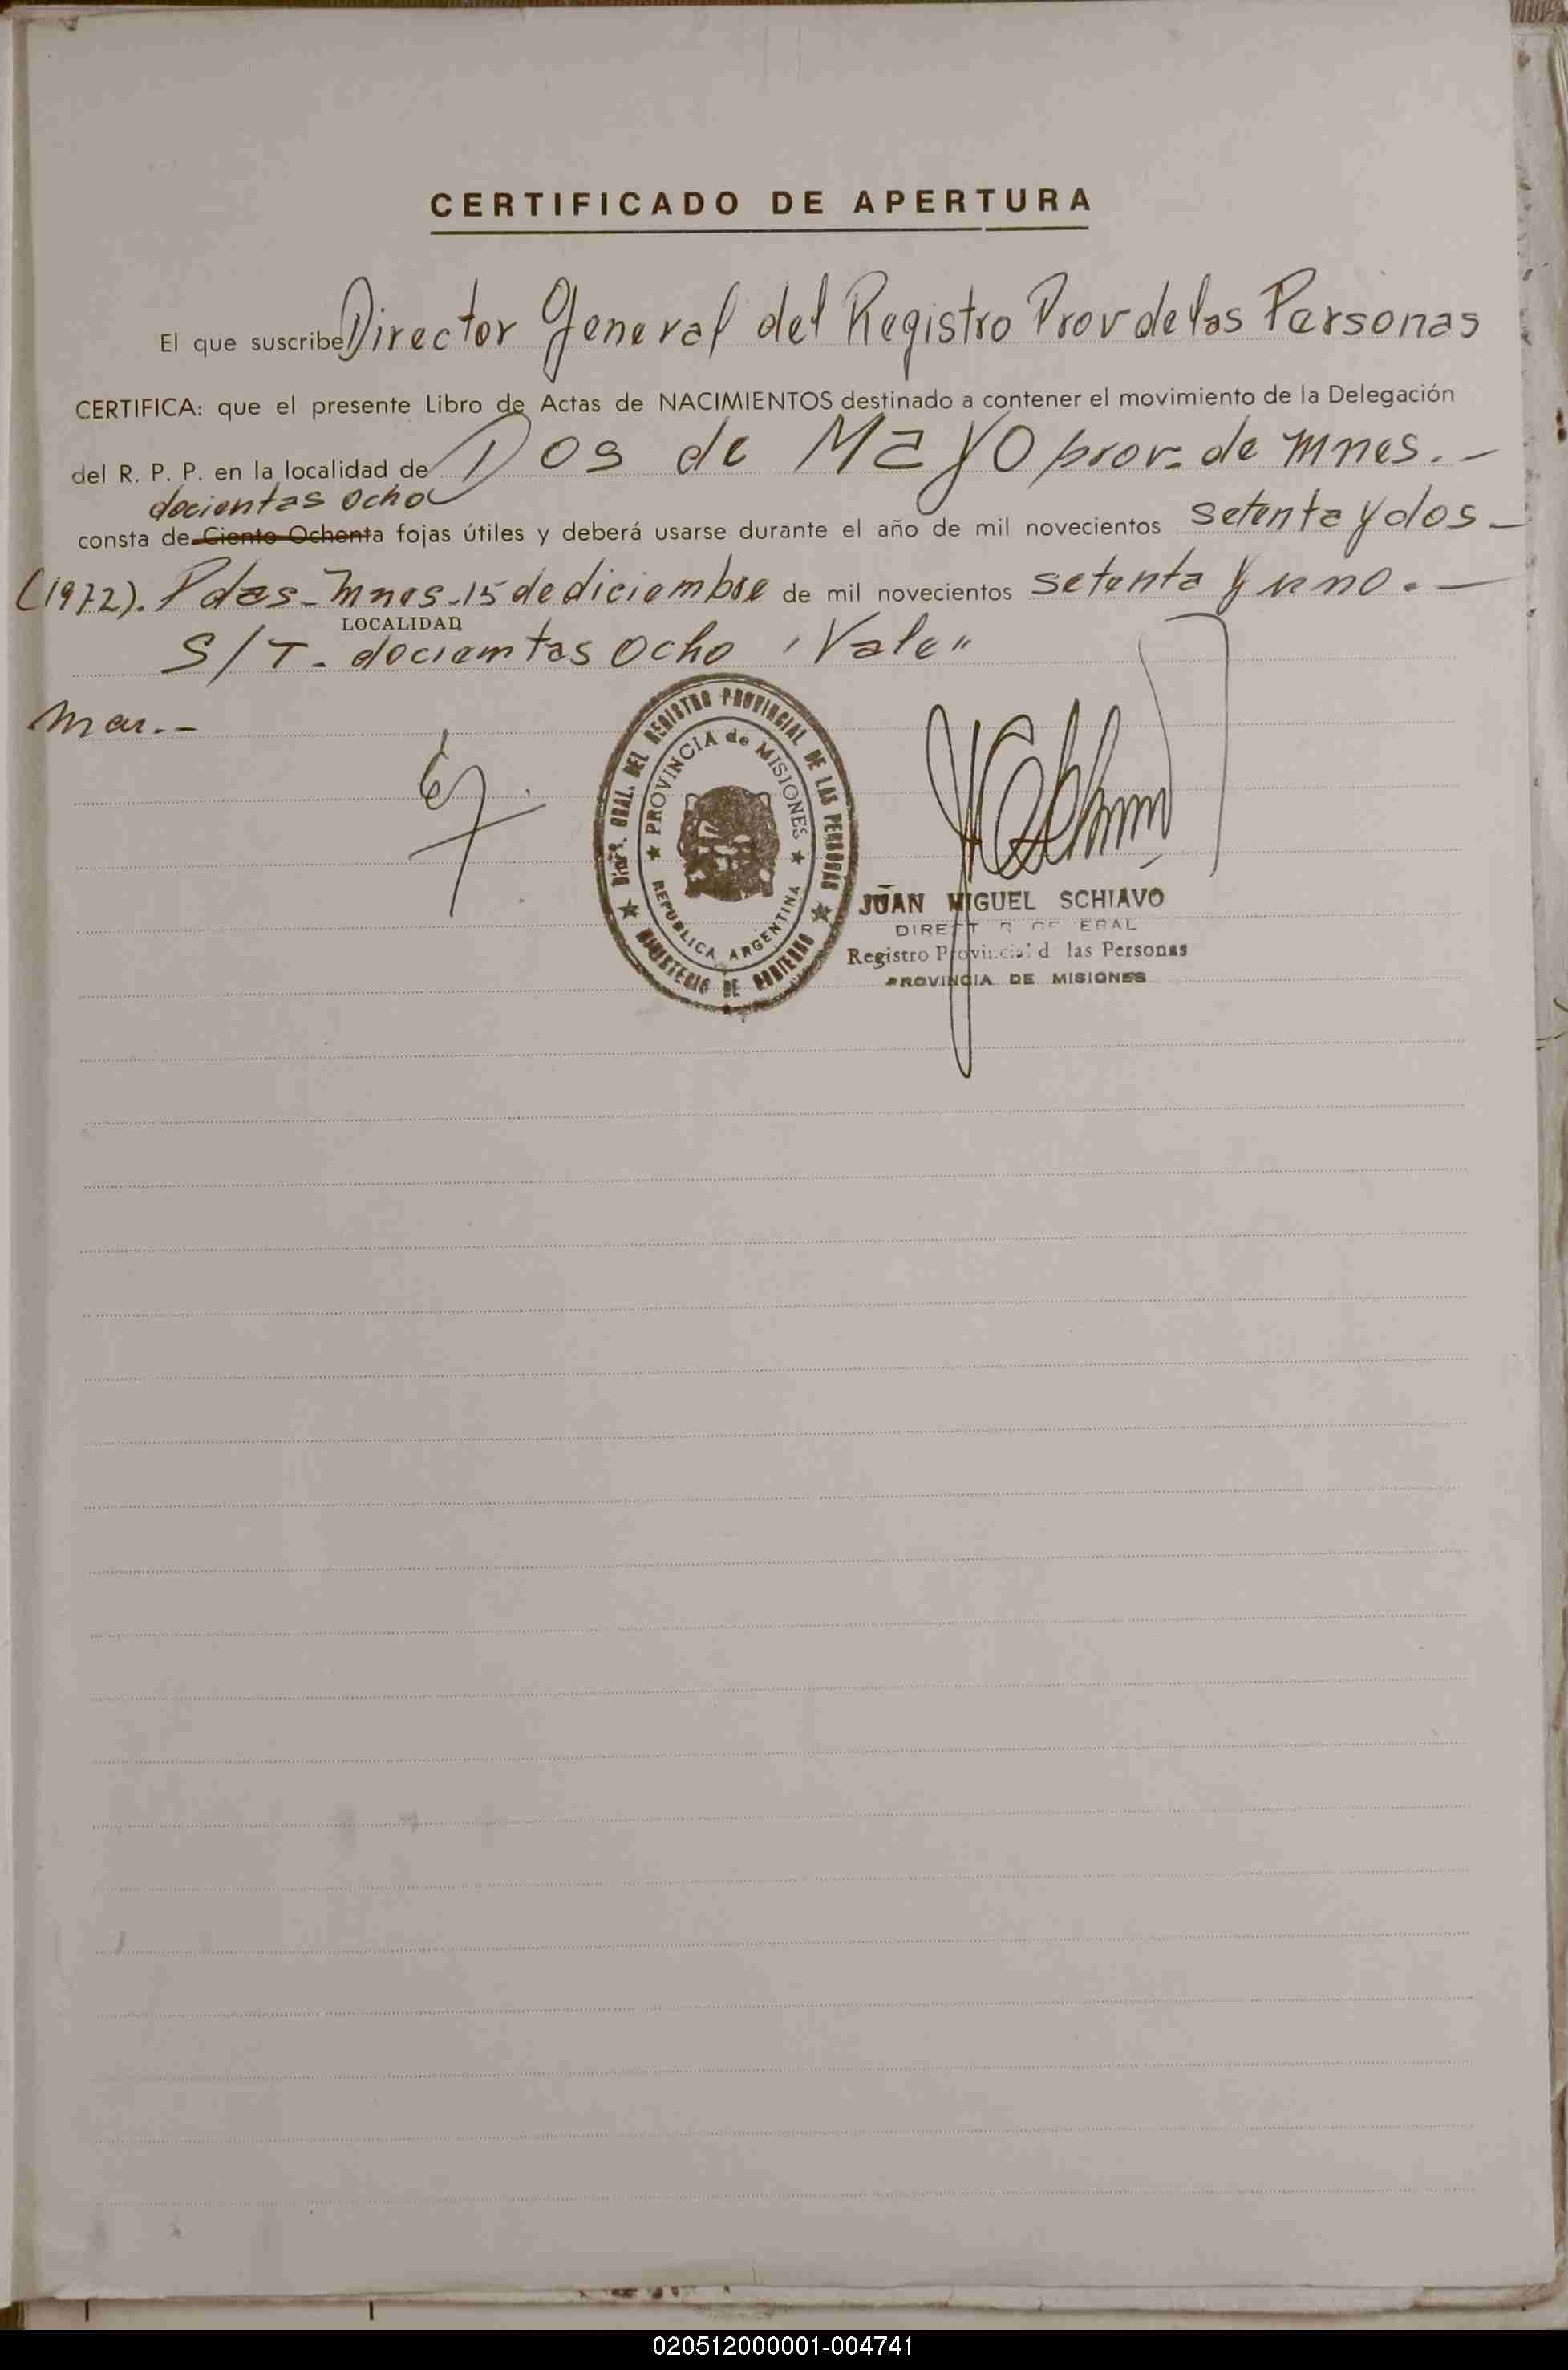 CERTIFICADO DE APERTURA
El que suscribe Director General del Registro Prov de las Personas
CERTIFICA: que el presente Libro de Actas de NACIMIENTOS destinado a contener el movimiento de la Delegación
del R. P. P. en la localidad de Dos de Mayo prov. de Mnes. -
docientas ocho
consta de Ciento Ochenta fojas útiles y deberá usarse durante el año de mil novecientos setenta y dos -
(1972). Pdas - Mnes - 15 de diciembre de mil novecientos setenta y uno. -
LOCALIDAD
S/T - docientas ocho "Vale"
Mar. -
DIREC. GRAL. DEL REGISTRO PROVINCIAL DE LAS PERSONAS
PROVINCIA de MISIONES
REPUBLICA ARGENTINA
MINISTERIO DE GOBIERNO
JUAN MIGUEL SCHIAVO
DIRECTOR GENERAL
Registro Provincial d las Personas
PROVINCIA DE MISIONES
020512000001-004741